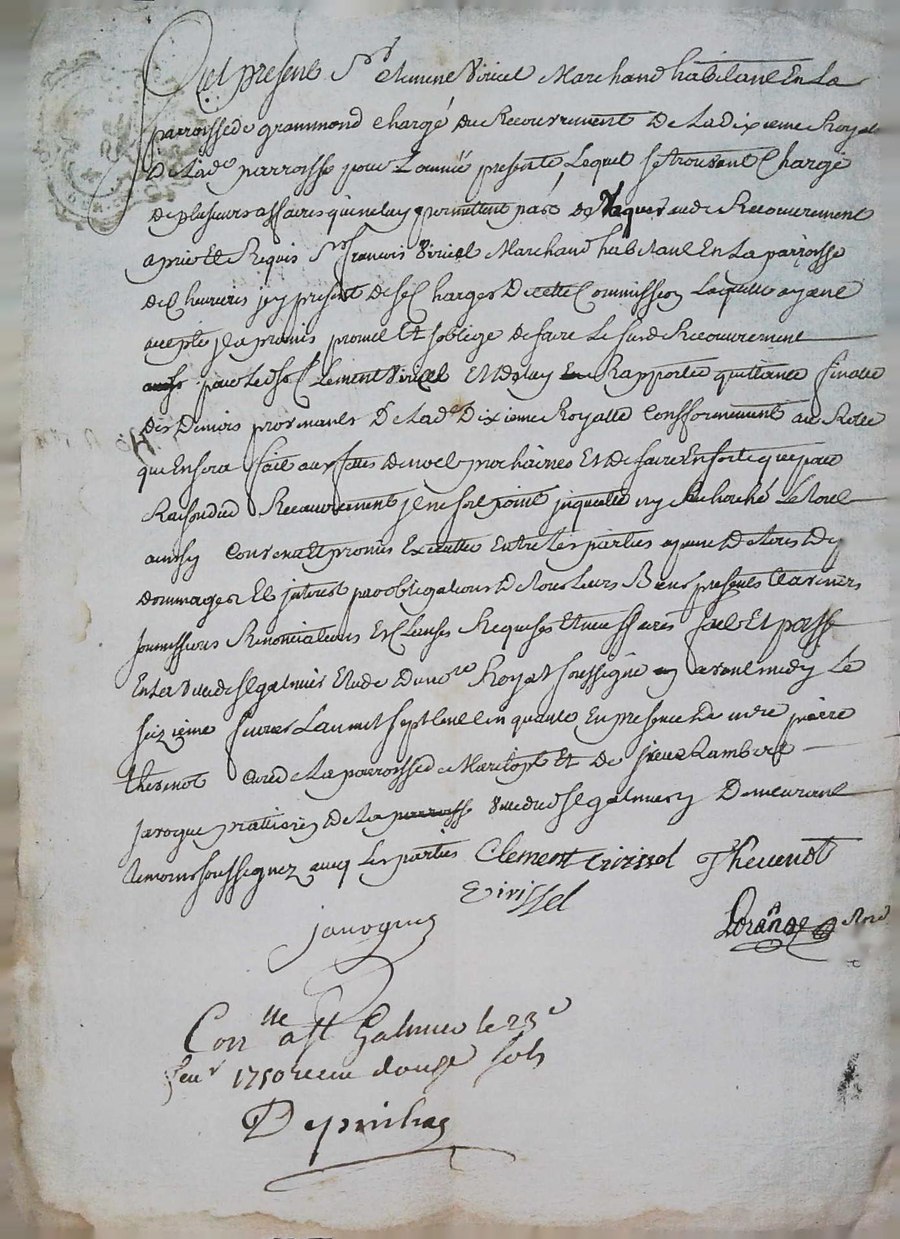 Est present Sr Clement Viricel Marchand habitant En La
parroisse de grammond chargé du Recouvrement De La dixieme Royal
De Lade parroisse pour L'année presente, Lequel se trouvant Chargé
de plusieurs affaires qui ne luy permettent pas de Vaquer aud Recouvrement
a prié Et Requis Sr francois Viricel Marchand habitant En La parroisse
de Chevrieres icy present de se Charger De cette Commission Laquelle ayant
acceptée il a promis promet Et soblige de faire Le susd Recouvrement
pour Led Sr Clement Viricel Et de luy En Rapporter quittance finalle
des Deniers provenants De Lade Dixieme Royalle Confformement au Rolle
qui En sera fait aux fettes de noel prochaines Et de faire En sorte que pour
Raison dud Recouvrement il ne soit point inquietté ny Recherché Le tout
ainsy Convenu Et promis Executter Entre Les parties a peine De tous Dep
dommages Et interest par obligations De tous Leurs Biens presents Et avenirs
soumissions Renonciations Et Clauses Requises Et necessaires fait Et passé
En La Ville de St galmier Etude du nore Royal soussigné avant midy Le
seizieme fevrier L'an mil sept Cent Cinquante En presence De mre pierre
thevenot curé de La parroisse de Et De sieur Rambert
javogue praticien De La parroisse Ville dud St galmier y Demeurant
temoins soussignez avecq Les parties Clement Virissel Thevenot
Virissel
javogues
Lorange Nore
Conlle a St Galmier le 23e
feur 1750 recu douze sols